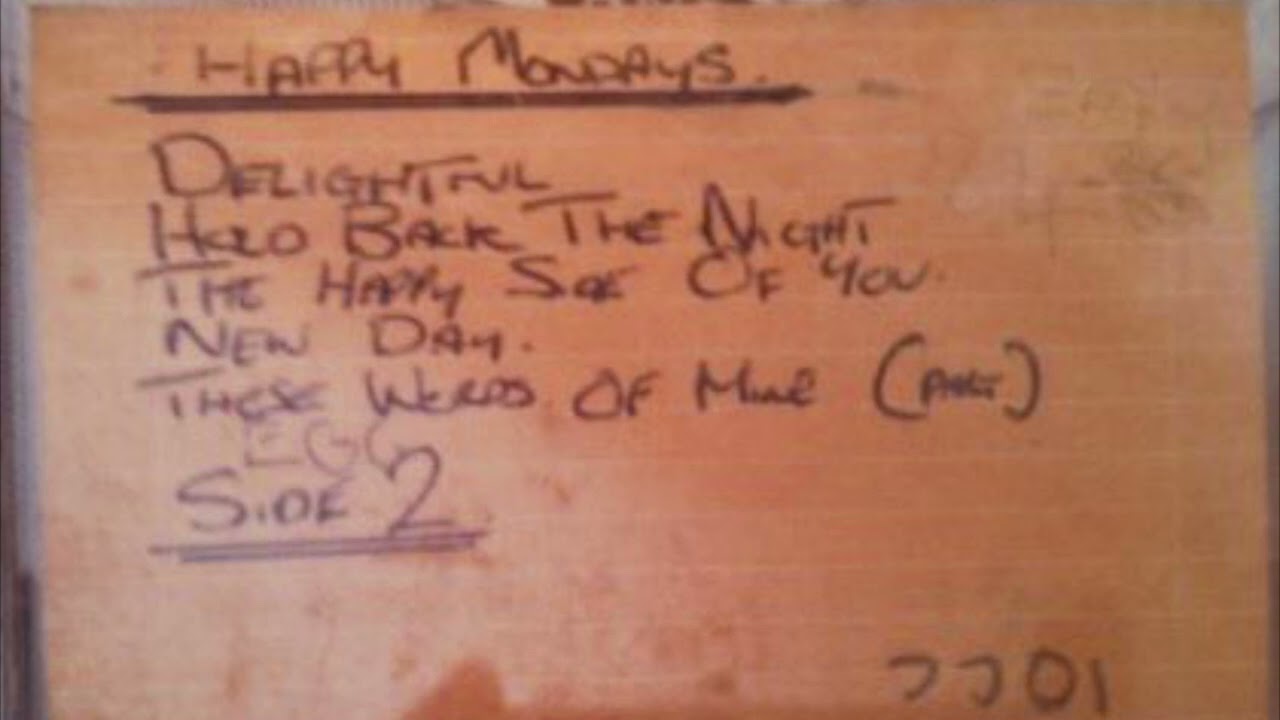 HAPPY MONDAYS.
DELIGHTFUL
HOLD BACK THE NIGHT
THE HAPPY SIDE OF YOU.
NEW DAY.
THESE WORDS OF MINE (PART)
EGG
SIDE 2